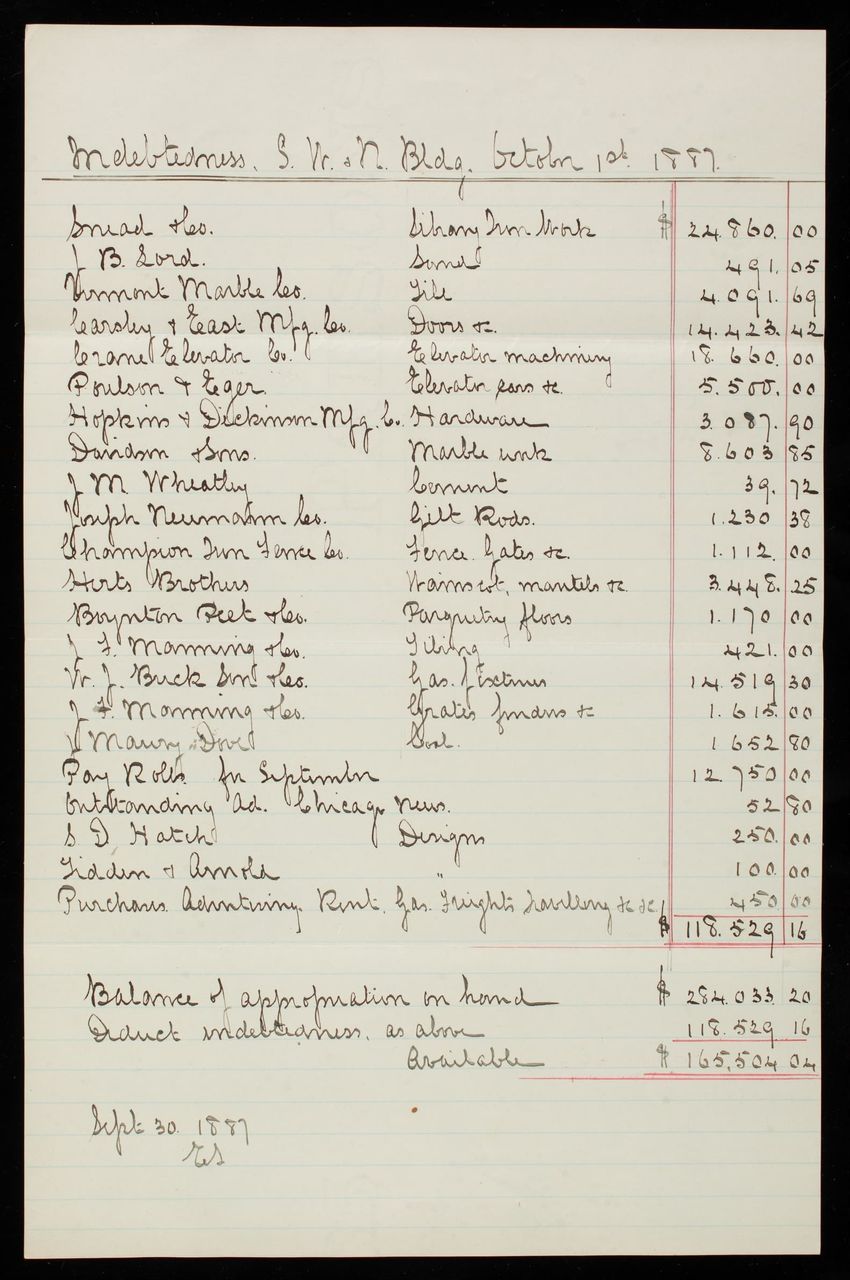 Indebtedness. S. W. & N. Bldg. October 1st 1887.
Snead & Co. Library Iron Work $ 24.860. 00
J B. Lord. Sand 491. 05
Vermont Marble Co. Tile 4.091. 69
Cearsley & East Mfg. Co. Doors &c. 14.423. 42
Crane Elevator Co. Elevator machinery 18.660. 00
Poulson & Eger. Elevator cars &c. 5.500. 00
Hopkins & Dickinson Mfg. Co. Hardware 3.087. 90
Davidson & Sons. Marble work 8.603 85
J M. Wheatley Cement 39. 72
Joseph Neumann Co. Gilt Rods. 1.230 38
Champion Iron Fence Co. Fence. Gates &c. 1.112. 00
Herts Brothers Wainscot, mantels &c. 3.448. 25
Boynton Peet & Co. Parquetry floors 1.170 00
J. F. Manning & Co. Tiling 421. 00
W. J. Buck Son & Co. Gas. fixtures 14.519 30
J F. Manning & Co. Grates fenders &c 1.615. 00
J Maury Dove Coal. 1652 80
Pay Rolls. for September 12.750 00
Outstanding Ad. Chicago News. 52 80
S D. Hatch Designs 250. 00
Tidden & Arnold " 100. 00
Purchases. Advertising. Rent. Gas. Freights travelling &c &c. 450 00
$ 118.529 16
Balance of appropriation on hand $ 284.033. 20
Deduct indebtedness. as above 118.529 16
Available $ 165,504 04
Sept 30. 1887
ES